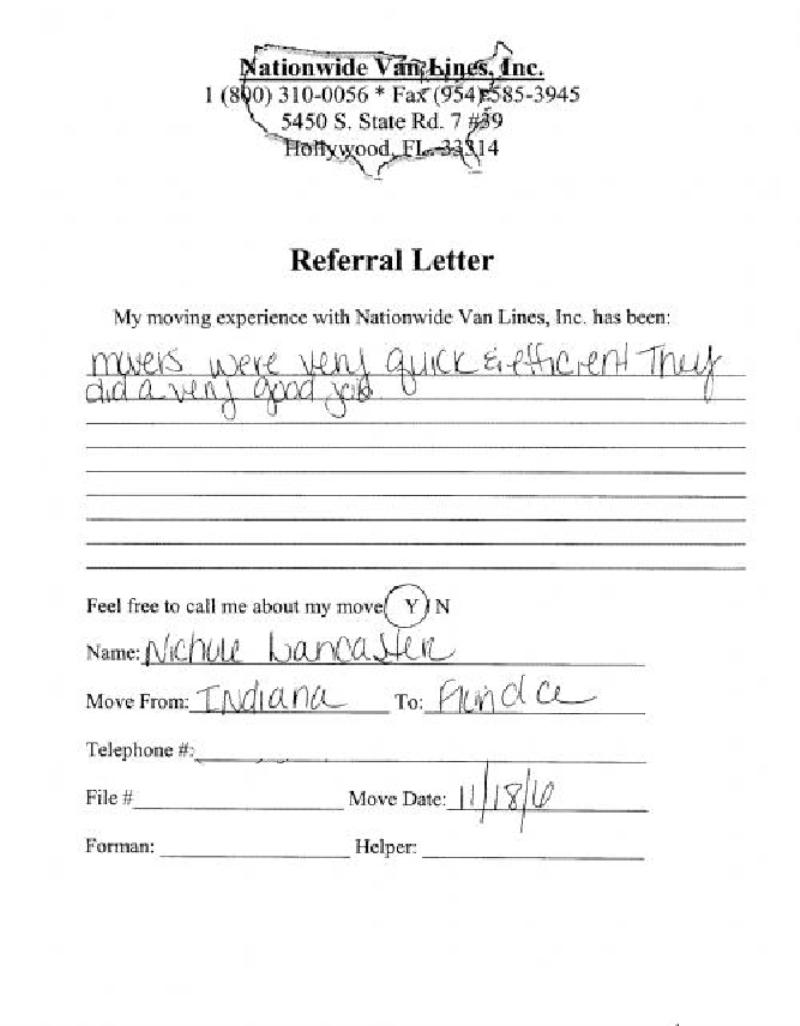 Nationwide Van Lines, Inc.
1 (800) 310-0056 * Fax (954) 585-3945
5450 S. State Rd. 7 #39
Hollywood, FL. 33314
Referral Letter
My moving experience with Nationwide Van Lines, Inc. has been:
movers were very quick & efficient They
did a very good job
Feel free to call me about my move Y N
Name: Nichole Lancaster
Move From: Indiana To:
Telephone #:
File # Move Date: 11/18/6
Forman: Helper: